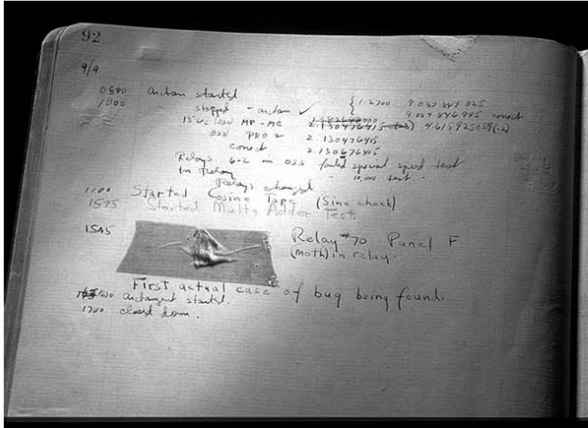 92
9/9
0800 antan started
1000 stopped - antan ✓ { 1.2700 9.037 847 025
9.037 846 995 correct
13"uc (032) MP - MC 2.130476415 4.615925059(-2)
033 PRO 2 2.130476415
correct 2.130676415
Relays 6-2 in 033 failed special speed test
in relay 10.000 test.
Relays changed
1100 Started Cosine Tape (Sine check)
1525 Started Mult + Adder Test.
1545 Relay #70 Panel F
(moth) in relay.
First actual case of bug being found.
1630 antangent started.
1700 closed down.